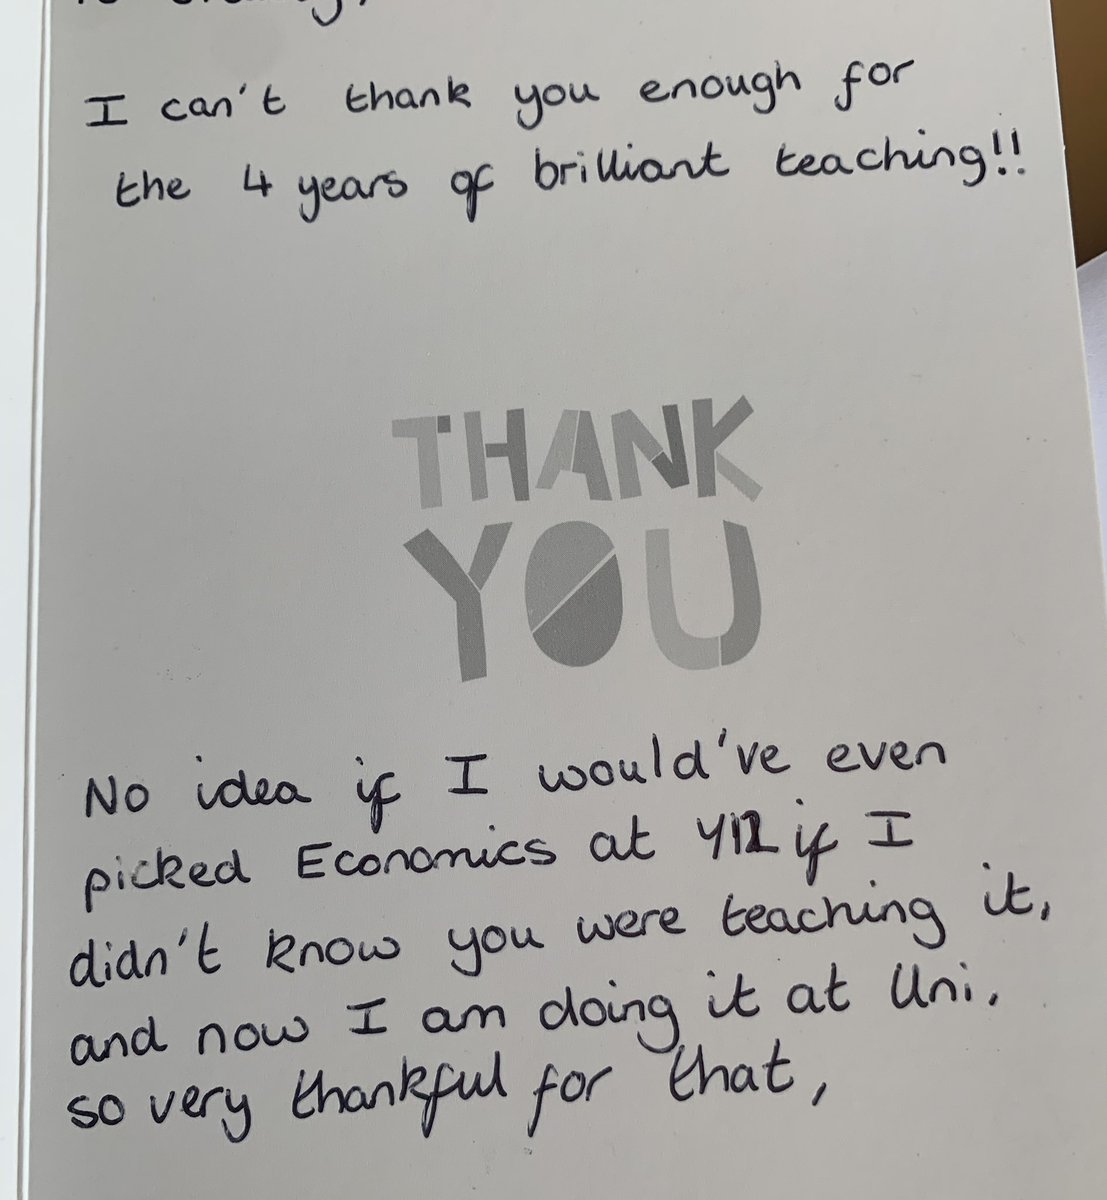 I can't thank you enough for
the 4 years of brilliant teaching!!
THANK
YOU
No idea if I would've even
picked Economics at Y12 if I
didn't know you were teaching it,
and now I am doing it at Uni,
so very thankful for that,